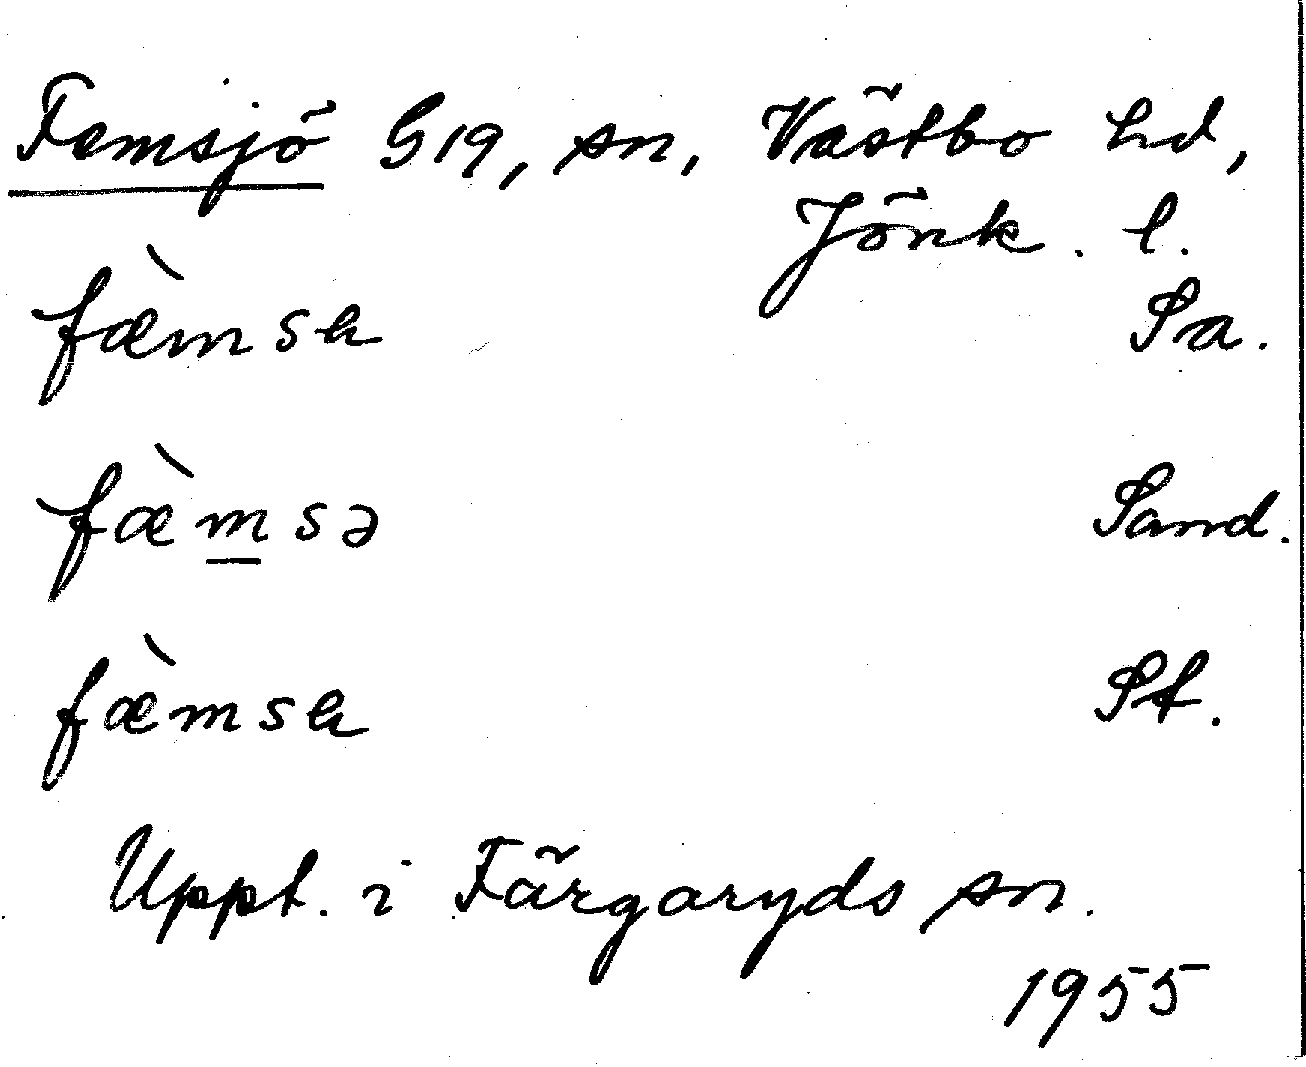 Femsjö G19, sn, Västbo hd,
Jönk. l.
fæ̀msa Sa.
fæ̀msə Sand.
fæ̀msa St.
Uppt. i Färgaryds sn.
1955